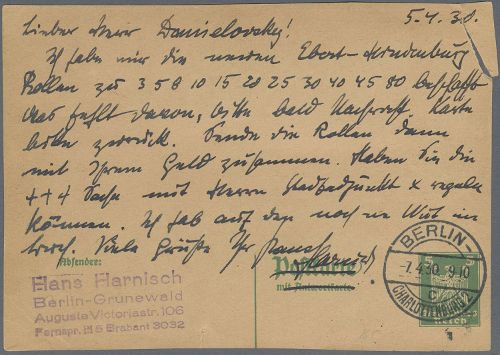 Lieber Herr Danielovsky! 5.4.30.
Ich habe mir die neuen Ebert-Hindenburg
Rollen zu 3 5 8 10 15 20 25 30 40 45 80 beschafft
Was fehlt davon, bitte bald Nachricht. Karte
bitte zurück. Sende die Rollen dann
mit Ihrem Geld zusammen. Haben Sie die
+++ Sache mit Herrn x regeln
können. Ich hab auf den noch ne Wut im
Viele Grüße Ihr Hans Harnisch
Absender:
Hans Harnisch
Berlin-Grunewald
Auguste Victoriastr. 106
Fernspr. H 5 Brabant 3032
Postkarte
mit Antwortkarte
BERLIN-
-7.4.30. 9-10
C
CHARLOTTENBURG 2
5